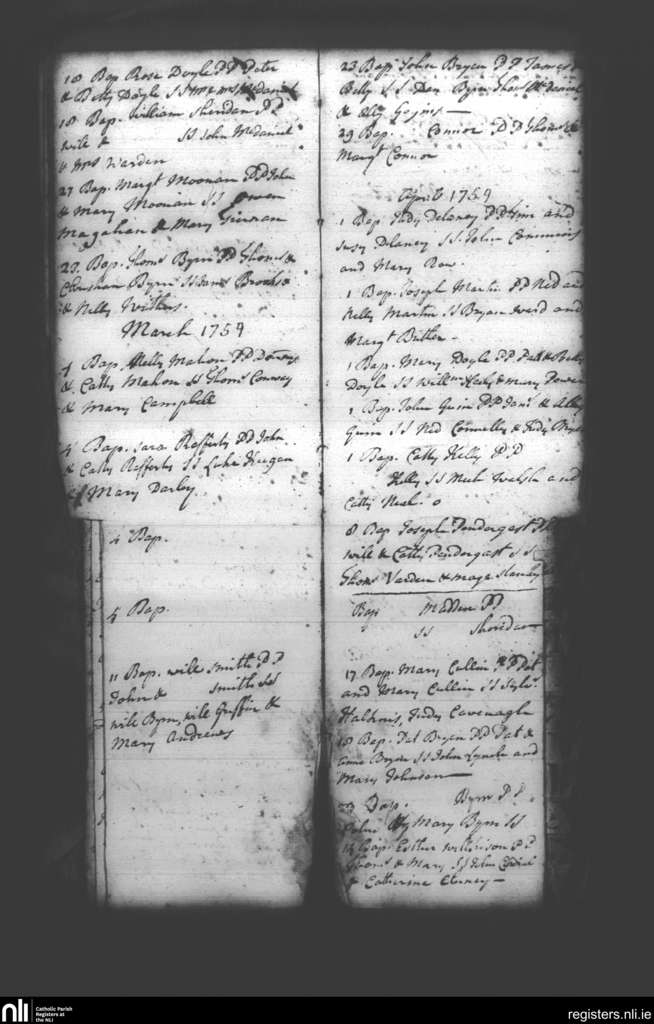 18 Bap Rose Doyle PP Peter
& Betty Doyle SS
18 Bap. William Sheridan PP
will & SS John McDaniel
& Mrs Warden
27 Bap. Margt Moonan PP John
& Mary Moonan SS Owen
Magahan & Mary
23. Bap. Thoms Byrn PP Thoms &
Byrn SS James
& Nelly Withers.
March 1754
4 Bap. Nelly Mahon PP
& Catty Mahon SS Thoms Conway
& Mary Campbell
4 Bap. Sara Rafferty PP John
& Catty Rafferty SS Luke Keegan
& Mary Darley
4 Bap.
4 Bap.
11 Bap. will Smith PP
John & Smith SS
will Byrn, will Griffin &
Mary Andrews
23 Bap John Bryan PP James
Betty SS Dan Byrn Thoms McDaniel
&
29 Bap. Connor PP Thoms &
Margt Connor
April 1754
1 Bap Judy Delaney PP Jim and
Susy Delaney SS. John Cummins
and Mary Row.
1 Bap. Joseph Martin PP Ned and
Nelly Martin SS Bryan Ward and
Margt Butler.
1 Bap. Mary Doyle PP Patt &
Doyle SS Willm & Mary Power
1 Bap. John Guin PP Jams & Alley
Guin SS Ned Connelly & Judy
1 Bap. Catty Kelly PP
Kelly SS Mich Walsh and
Catty
8 Bap Joseph Pendergast PP
will & Catty Pendergast SS
Thoms Varden &
Bap Madden PP
SS Sheridan
17 Bap. Mary Cullin PP Pat
and Mary Cullin SS
Judy Cavenagh
18 Bap. Pat Bryan PP Pat &
Anne Bryan SS John Lynch and
Mary Johnson
23 Bap. Byrn PP
Mary Byrn SS
Bap. Esther Wilkinson PP
Thoms & Mary SS John
& Catherine
nli
Catholic Parish
Registers at
the NLI
registers.nli.ie